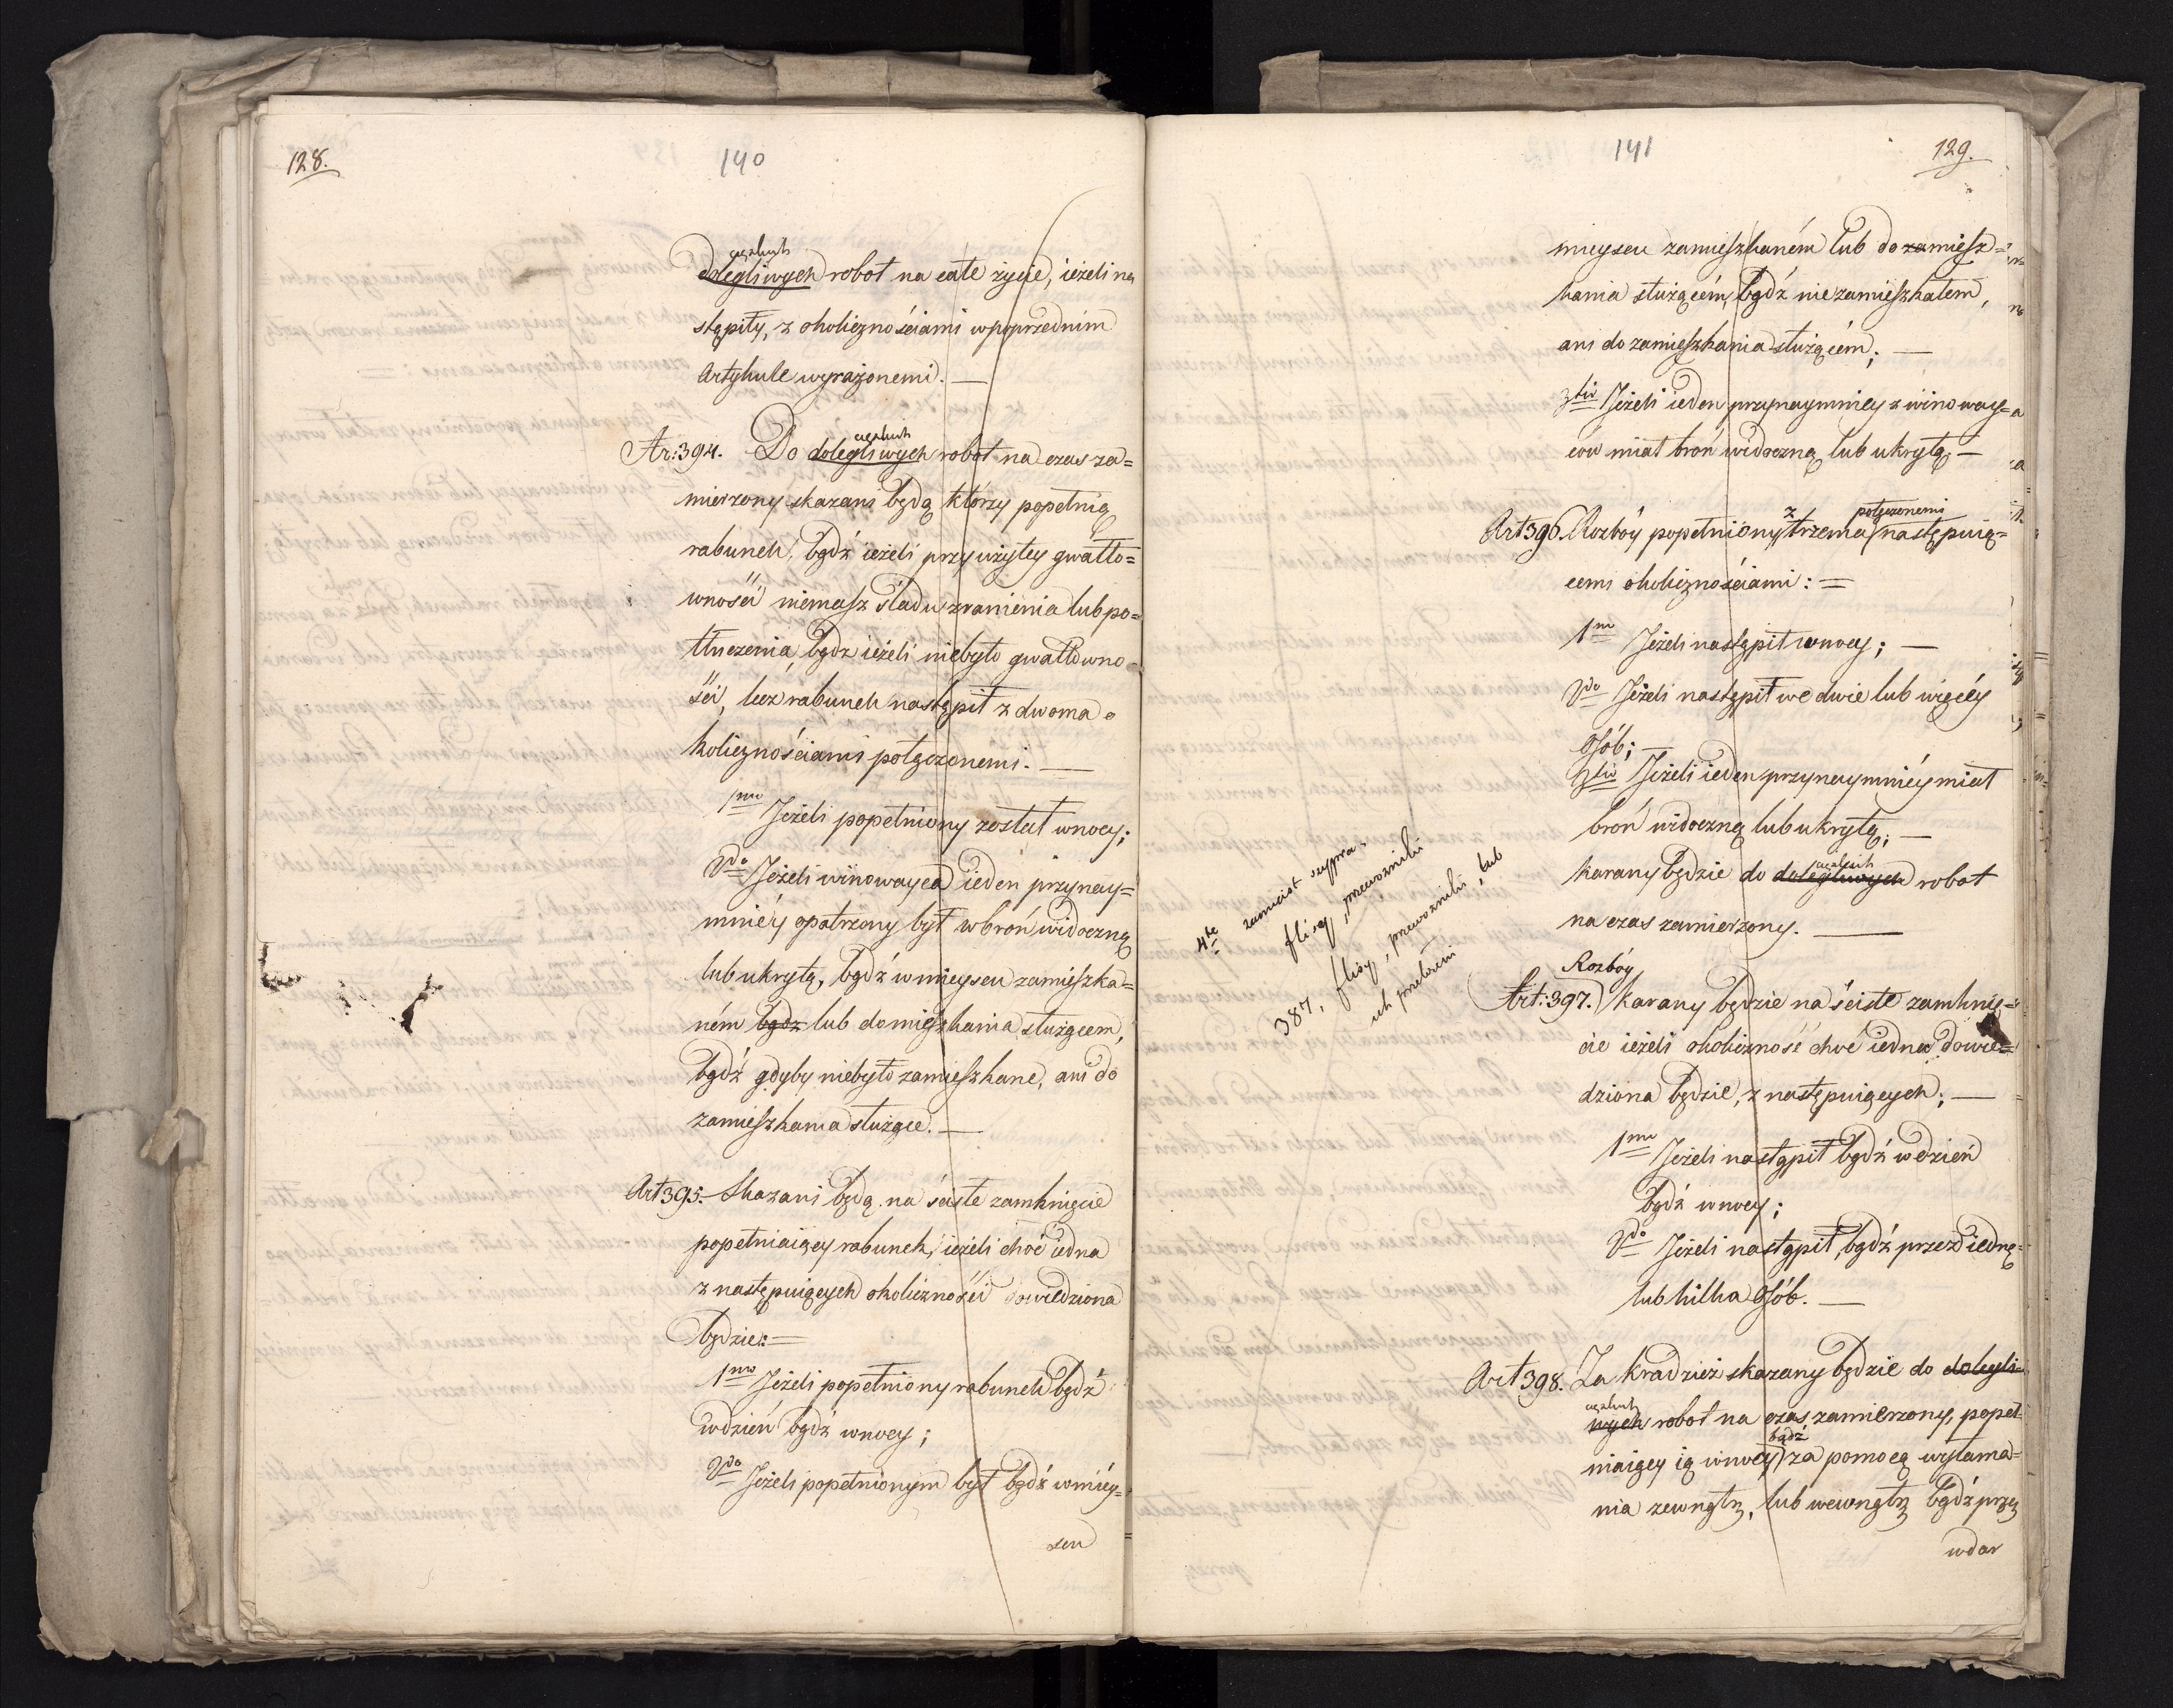 128.
140
ciężkich
dolegliwych robot na całe życie, ieżeli na
stąpiły, z okolicznościami w poprzednim
Artykule wyrażonemi. —
ciężkich
Ar: 394. Do dolegliwych robot na czas za=
mierzony skazani będą którzy popełnią
rabunek, bądź ieżeli przy użytey gwałto=
wności niemasz śladu zranienia lub po=
tłuczenia, bądz ieżeli niebyło gwałtowno
ści, lecz rabunek nastąpił z dwoma o
kolicznościami połączonemi. —
1mo Jeżeli popełniony został w nocy;
2do Jeżeli winowayca ieden przynay=
mniéy opatrzony był w broń widoczną
lub ukrytą, bądź w mieyscu zamieszka=
ném bądz lub do mieszkania służącem,
bądź gdyby niebyło zamieszkane, ani do
zamieszkania służące. —
Art 395. Skazani będą na ściste zamknięcie
popełniaiący rabunek, ieżeli choć iedna
z następuiących okoliczności dowiedziona
będzie: =
1mo Jeżeli popełniony rabunek bądź
w dzień bądź w nocy;
2do Jeżeli popełnionym był bądź w miéy=
scu
141
129.
mieyscu zamieszkaném lub do zamiesz=
kania służącém, bądź nie zamieszkałem,
ani do zamieszkania służącém; —
3tio Jeżeli ieden przynaymniey z winoway=
ców miał broń widoczną lub ukrytą —
z połączonemi
Art 396. Rozbóy popełniony trzema następuią=
cemi okolicznościami: =
1mo Jeżeli nastąpił w nocy; —
2do Jeżeli nastąpił we dwie lub więcéy
Osób; —
3tio Jeżeli ieden przynaymniéy miał
broń widoczną lub ukrytą; —
ciężkich
karany będzie do dolegliwych robot
na czas zamierzony. —
4te zamiast
flisy, przewoźniki
387, flisy, przewoźniki, lub
ich
Rozbóy
Art: 397. Karany będzie na ściste zamknię=
cie ieżeli okoliczność choć iedna dowie=
dziona będzie, z następuiących; —
1mo Jeżeli nastąpił bądź w dzień
bądź w nocy;
2do Jeżeli nastąpił, bądź przez iednę
lub kilka Osób. —
Art 398. Za kradzież skazany będzie do dolegli=
ciężkich
wych robot na czas zamierzony, popeł=
bądź
niaiący ią w nocy za pomocą wyłama=
nia zewnątrz, lub wewnątrz bądź przez
wdar